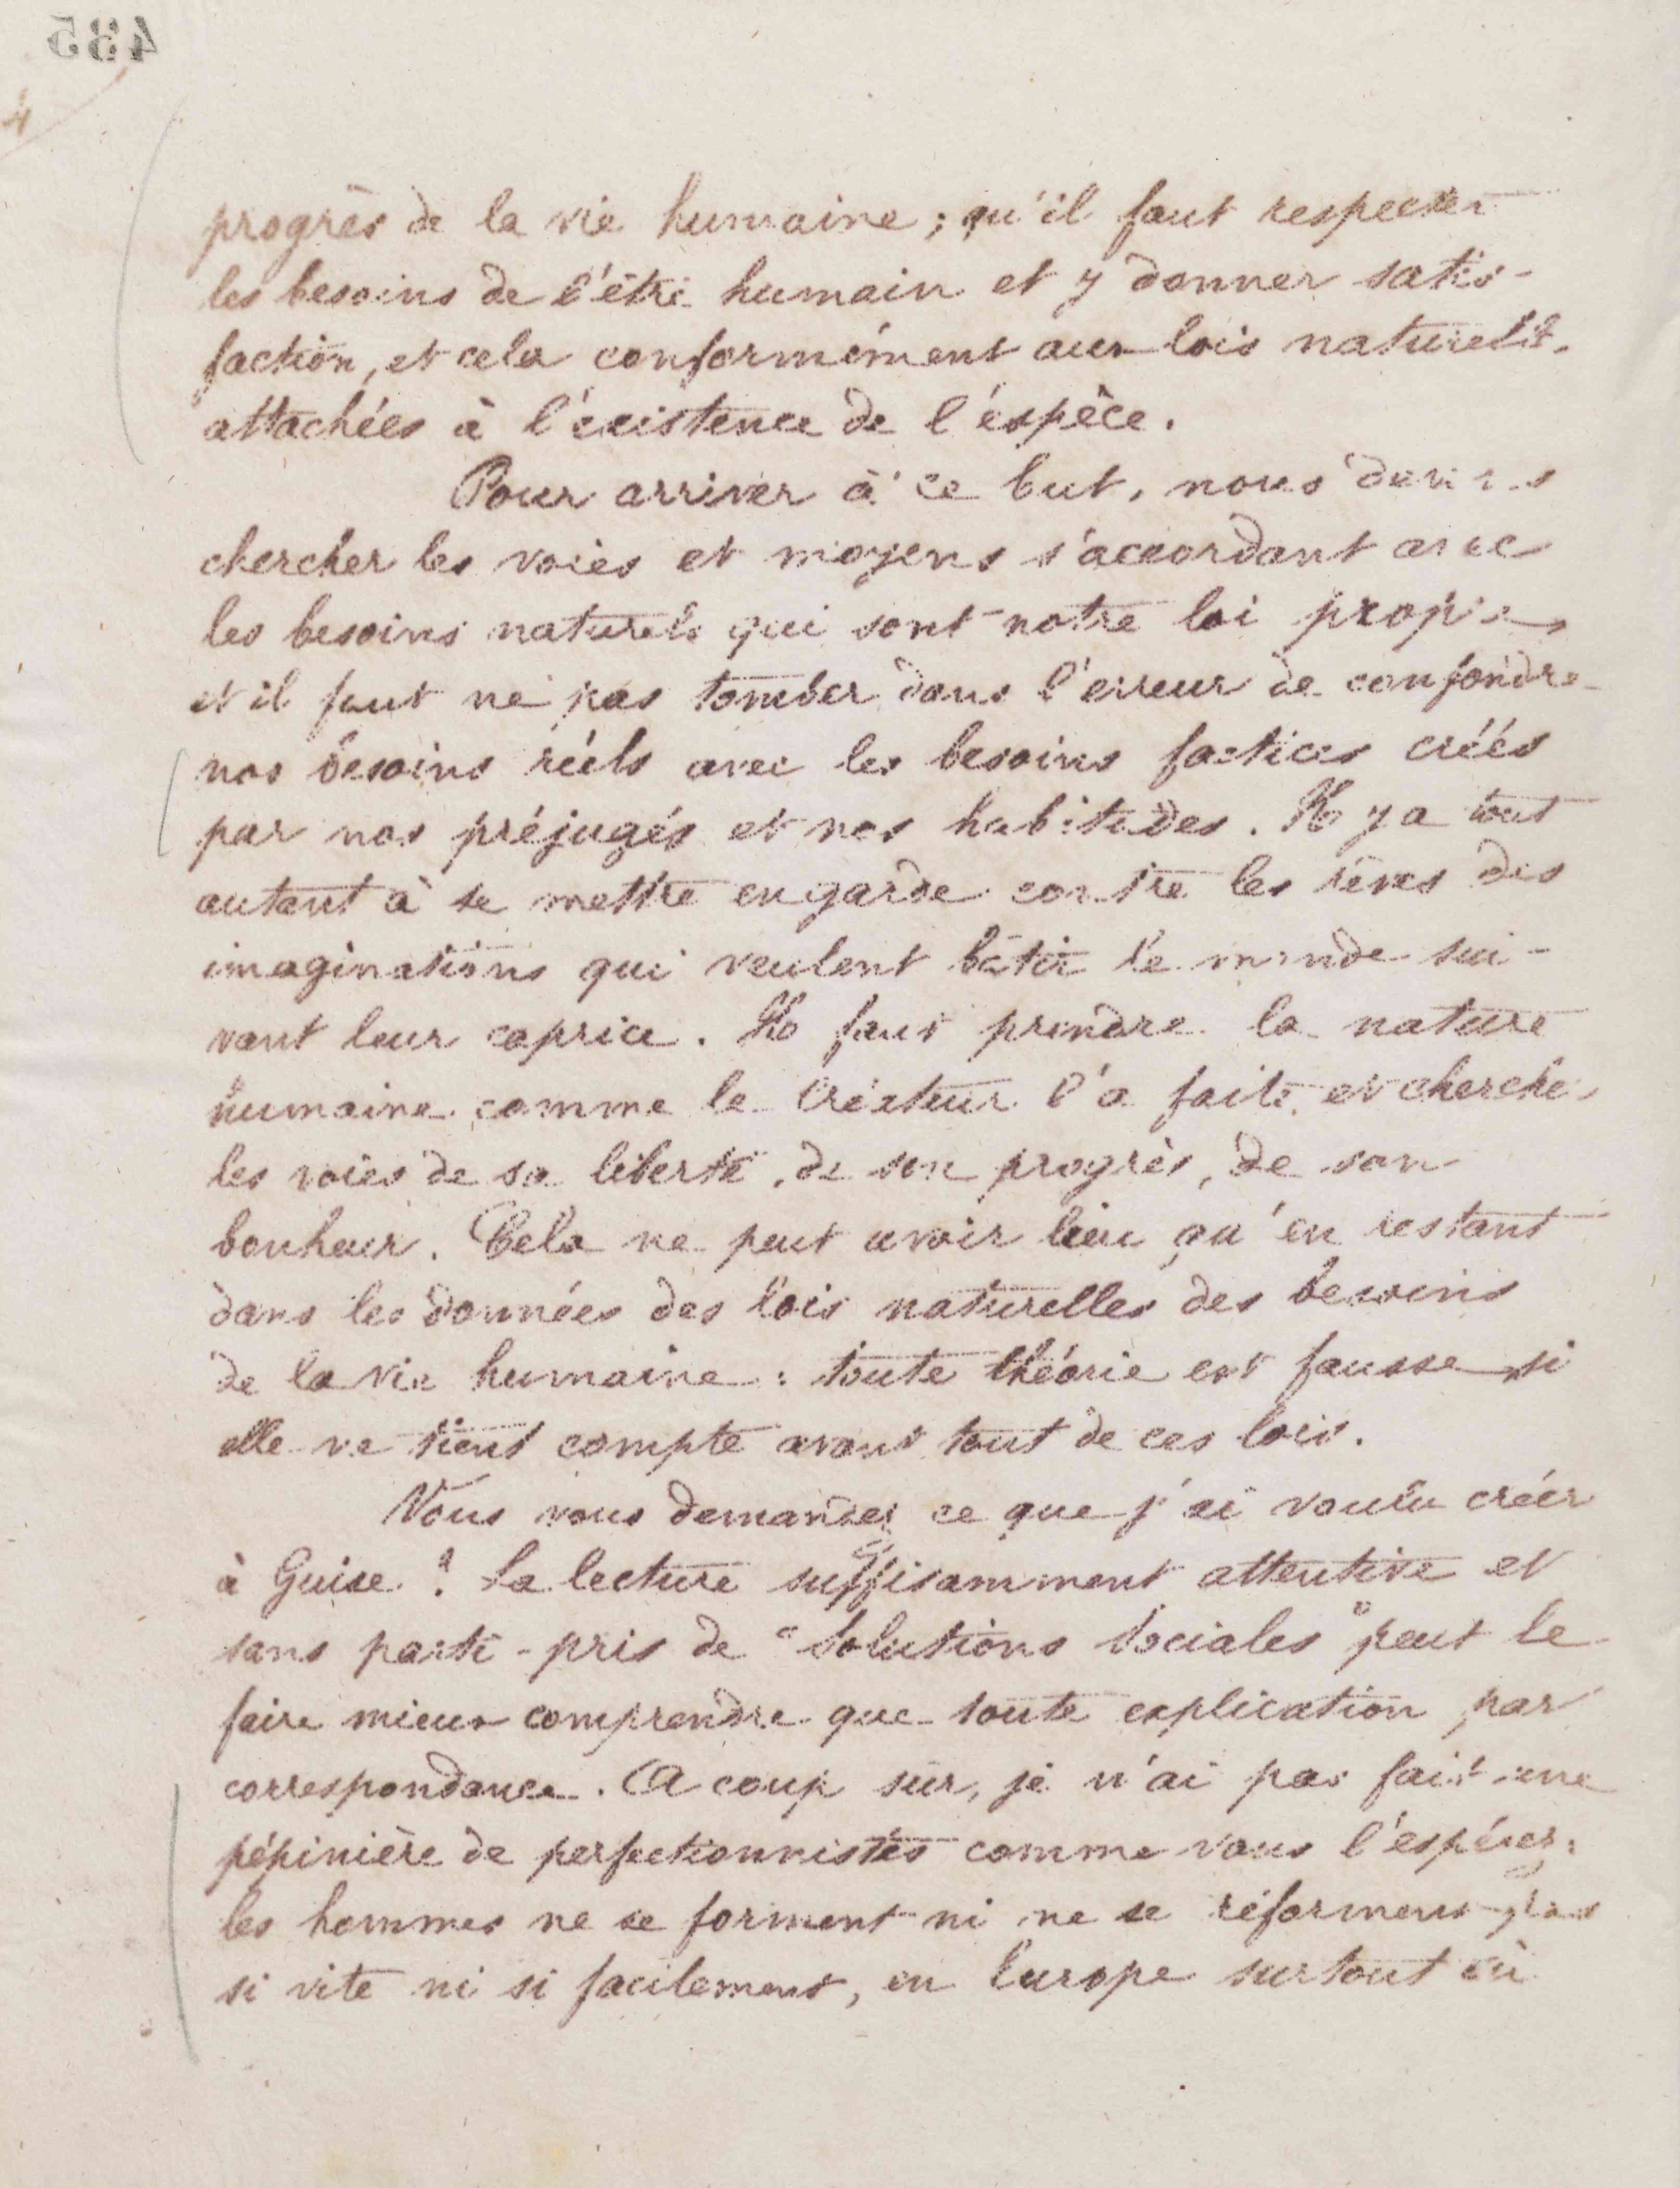 485
4
progrès de la vie humaine ; qu'il faut respecter
les besoins de l'être humain et y donner satis-
faction, et cela conformément aux lois naturelles
attachées à l'existence de l'espèce.
Pour arriver à ce but, nous devons
chercher les voies et moyens s'accordant avec
les besoins naturels qui sont notre loi propre,
et il faut ne pas tomber dans l'erreur de confondre
nos besoins réels avec les besoins factices créés
par nos préjugés et nos habitudes. Il y a tout
autant à se mettre en garde contre les rêves des
imaginations qui veulent bâtir le monde sui-
vant leur caprice. Il faut prendre la nature
humaine comme le Créateur l'a faite, et chercher
les voies de sa liberté, de son progrès, de son
bonheur. Cela ne peut avoir lieu qu'en restant
dans les données des lois naturelles des besoins
de la vie humaine : toute théorie est fausse si
elle ne tient compte avant tout de ces lois.
Vous vous demandez ce que j'ai voulu créer
à Guise ? La lecture suffisamment attentive et
sans parti-pris de "Solutions Sociales" peut le
faire mieux comprendre que toute explication par
correspondance. A coup sûr, je n'ai pas fait une
pépinière de perfectionnistes comme vous l'espérez ;
les hommes ne se forment ni ne se réforment pas
si vite ni si facilement, en Europe surtout où